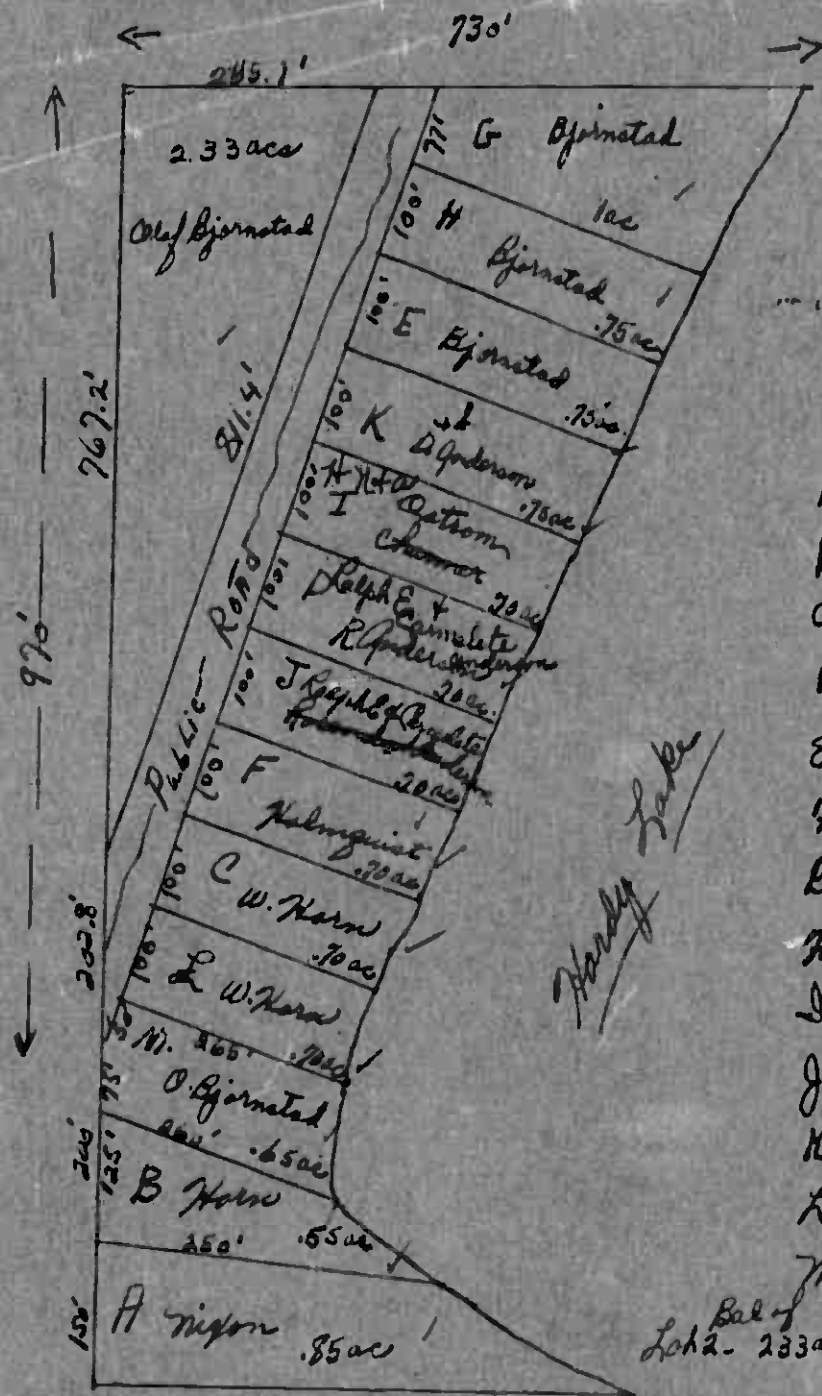 730'
245.1'
2.33 acs
Olaf Bjornstad
970'
767.2'
811.4'
Public Road
202.8'
77' G Bjornstad
1 ac
100' H Bjornstad
.75 ac
100' E Bjornstad
.75 ac.
100' K
D Anderson
.70 ac
100' H
I Ostrom
.70 ac
100' D Ralph E &
R Anderson
.70 ac.
100' J Ralph E &
.70 ac
100' F
Holmquist
.70 ac
100' C W. Horn
.70 ac
100' L W. Horn
.70 ac
50' M. 265'
75' O. Bjornstad
260' .65 ac
200'
125' B Horn
250' .55 ac
150' A Nixon
.85 ac
Hardy Lake
Bal of
Lot 2 - 233a